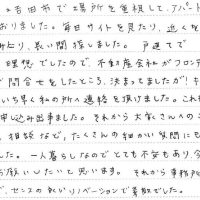 吉田市で場所を重視して、アパート
おりました。毎日サイトを見たり、近くを
り、長い間探しました。戸建てで
理想でしたので、不動産会社がフロンテ
で問合せをしたところ、決まってましたが!
いち早く私の所へ連絡を頂けました。これ
申し込み出来ました。それから大家さんへの
相談など、たくさんの細かい質問にも
した。一人暮らしなのでとても不安もあり、今
お願いしたいと思います。それから事務所
で、センスの良いリノベーションで素敵でした。